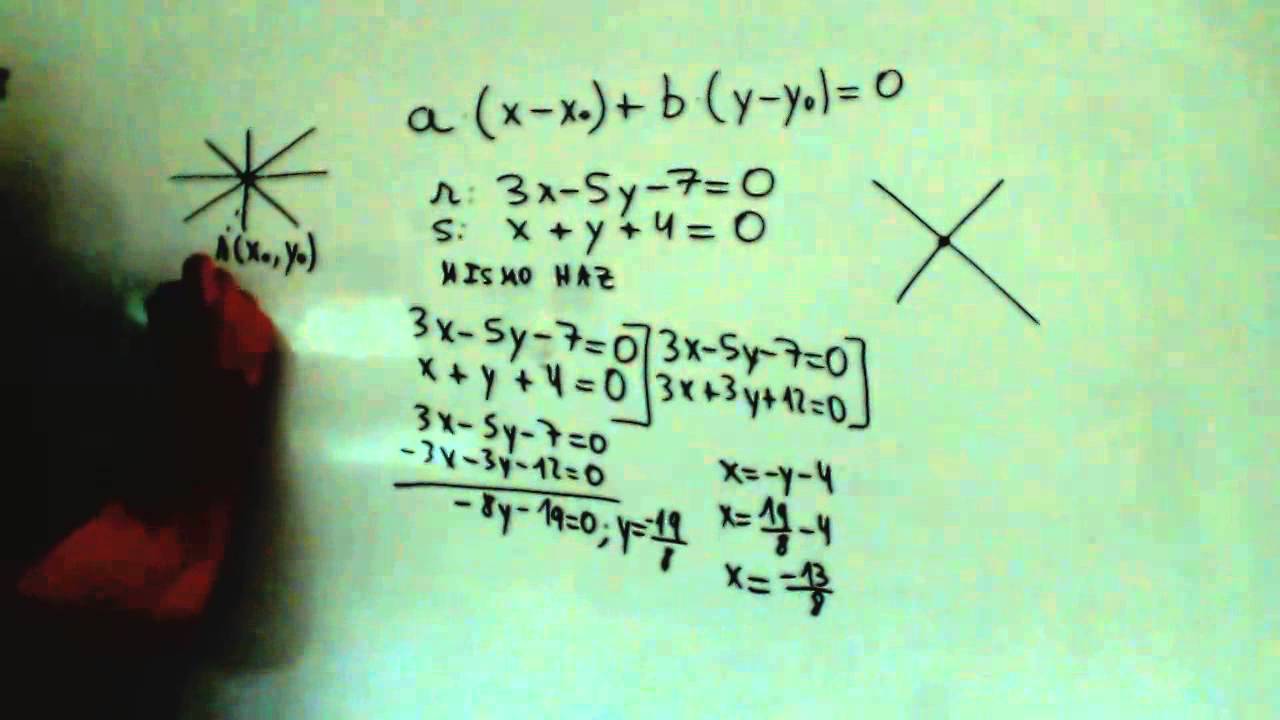 a·(x-x₀)+b·(y-y₀)=0
r: 3x-5y-7=0
s: x+y+4=0
A(x₀,y₀)
MISMO HAZ
3x-5y-7=0] 3x-5y-7=0]
x+y+4=0] 3x+3y+12=0]
3x-5y-7=0
-3x-3y-12=0
-8y-19=0; y=-19/8
x=-y-4
x=19/8-4
x=-13/8